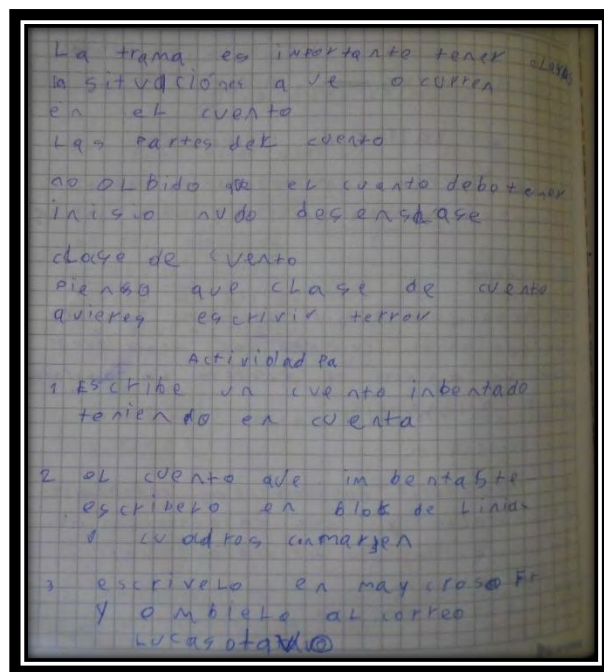 La trama es importante tener claras
la situaciónes que ocurren
en el cuento
Las partes del cuento
no olbido que el cuento debe tener
inisio nudo desenshase
clase de cuento
piensa que clase de cuento
quieres escrivir terror
Actividad Pa
1 Escribe un cuento inbentado
teniendo en cuenta
2 el cuento que imbentaste
escrivelo en blok de linias
cuadros con marjen
3 escrivelo en maycroso
y ombielo al correo